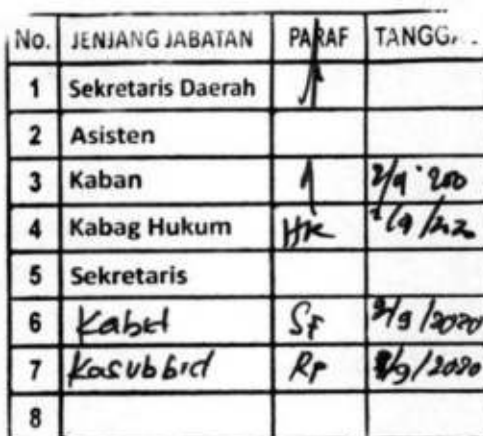 No. JENJANG JABATAN PARAF TANGG
1 Sekretaris Daerah
2 Asisten
3 Kaban
4 Kabag Hukum HK
5 Sekretaris
6 Kabid SF /9/2020
7 Kasubbid RP /9/2020
8